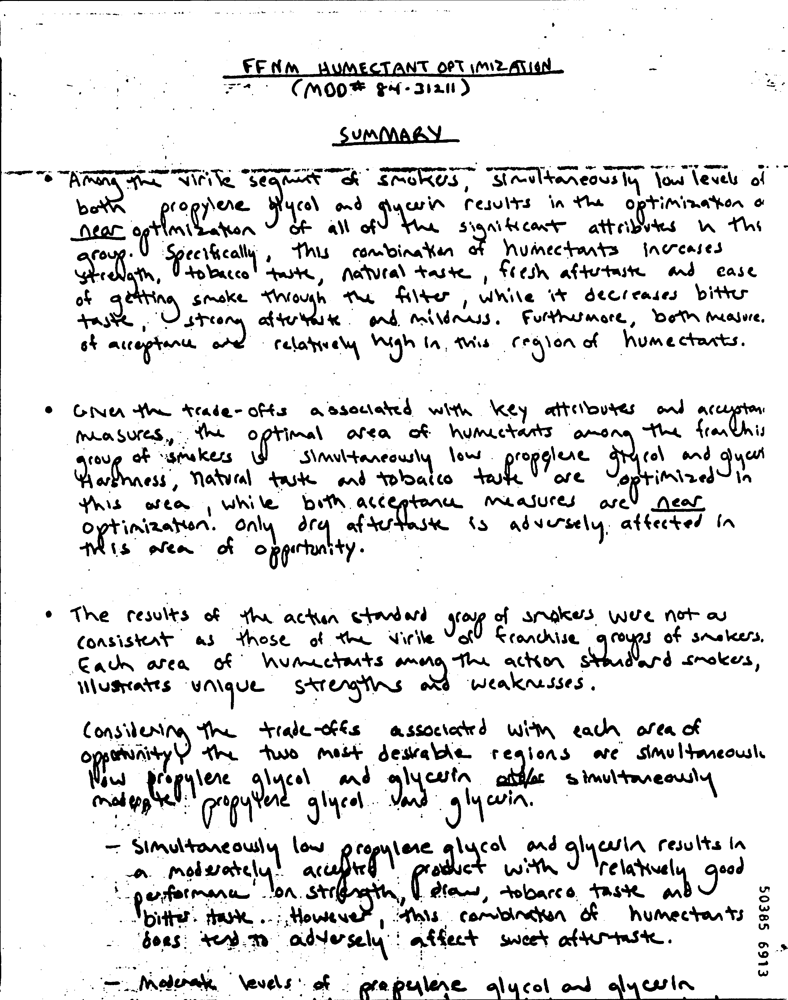 FFNM HUMECTANT OPTIMIZATION
(MOD# 84-31211)
SUMMARY
• Among the virile segment of smokers, simultaneously low levels of
both propylene glycol and glycerin results in the optimization o
near optimization of all of the significant attributes in this
group. Specifically, this combination of humectants increases
strength, tobacco taste, natural taste, fresh aftertaste and ease
of getting smoke through the filter, while it decreases bitter
taste, strong aftertaste and mildness. Furthermore, both measure.
of acceptance are relatively high in this region of humectants.
• Given the trade-offs associated with key attributes and acceptan
measures, the optimal area of humectants among the franchis
group of smokers is simultaneously low propylene glycol and glyceri
Harshness, natural taste and tobacco taste are optimized in
this area, while both acceptance measures are near
optimization. Only dry aftertaste is adversely affected in
this area of opportunity.
• The results of the action standard group of smokers were not as
consistent as those of the virile or franchise groups of smokers.
Each area of humectants among the action standard smokers,
illustrates unique strengths and weaknesses.
Considering the trade-offs associated with each area of
opportunity, the two most desirable regions are simultaneously
low propylene glycol and glycerin simultaneously
moderate propylene glycol and glycerin.
- Simultaneously low propylene glycol and glycerin results in
a moderately accepted product with relatively good
performance on strength, draw, tobacco taste and
bitter taste. However, this combination of humectants
does tend to adversely affect sweet aftertaste.
- Moderate levels of propylene glycol and glycerin
50385 6913